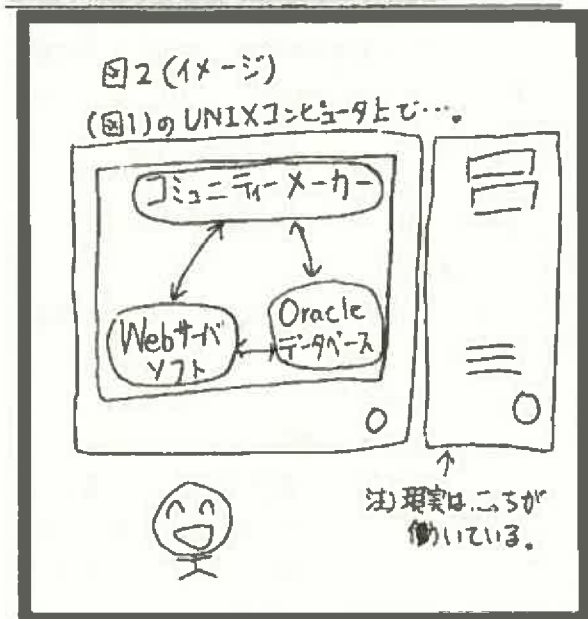 図2(イメージ)
(図1)のUNIXコンピュータ上で…。
コミュニティーメーカー
Webサーバ
ソフト
Oracle
データベース
注)現実は、こっちが
働いている。